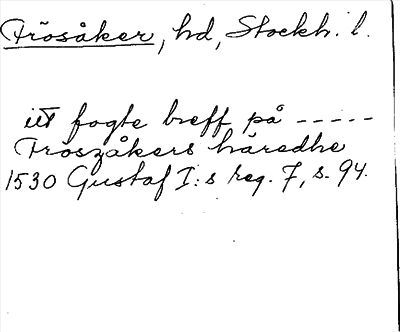 Frösåker, hd, Stockh. l.
itt fogte breff på -----
Fröszåkers häredhe
1530 Gustaf I:s reg. 7, s. 94.